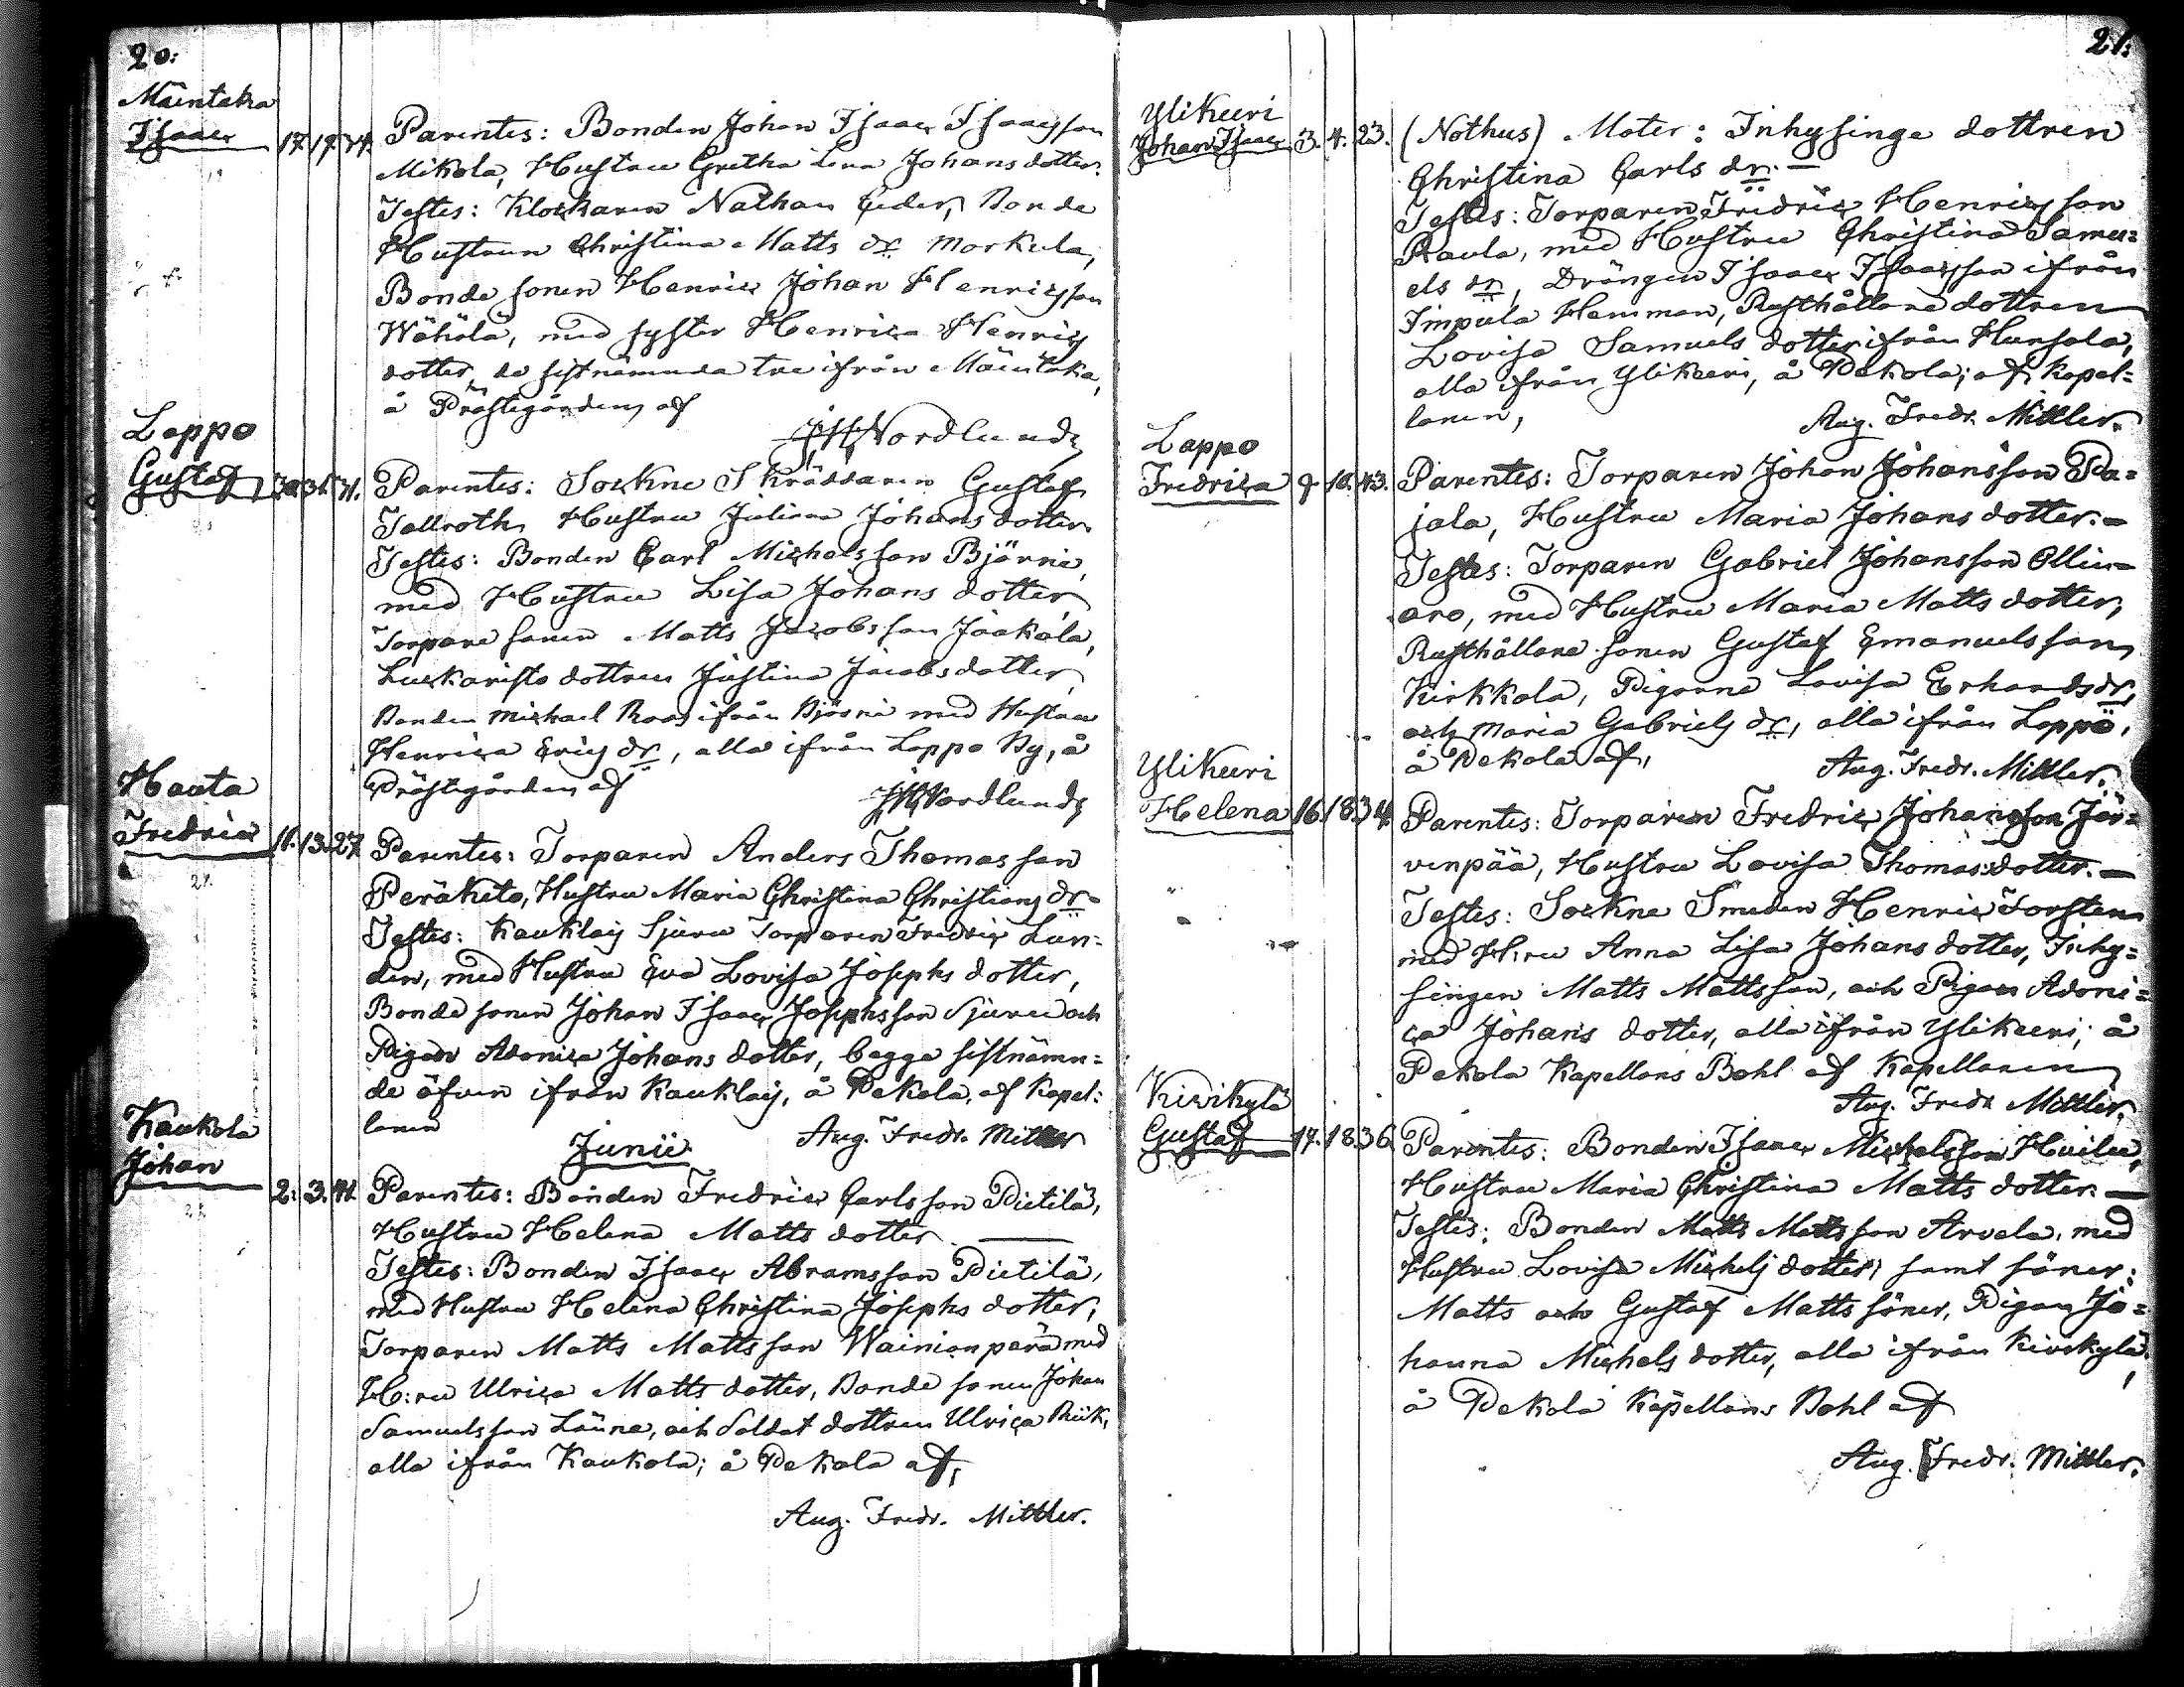 20.
Mäentaka
Isaac 17. 17. 34.
Parentes: Bonden Johan Isaac Isaacsson
Mikola, Hustru Gretha Lena Johansdotter.
Testes: Klockaren Nathan Ceder, Bonde
Hustrun Christina Matts dr Markula,
Bonde sonen Henric Johan Henricsson
Wähölä, med syster Henrica Henrics
dotter, de sistnämnda tre ifrån Mäentaka,
å Prästgården af
Nordlund
Lappo
Gustaf 30. 31. 31.
Parentes: Sockne Skräddaren Gustaf
Tallroth, Hustru Juliana Johansdotter
Testes: Bonden Carl Michelsson Björni,
med Hustru Lisa Johans dotter,
Torpare sonen Matts Jacobsson Jaakola,
dottren Justina Jacobsdotter,
Bonden Michael Roos ifrån Björni med Hustru
Henrica Erics dr, alla ifrån Lappo By, å
Prästgården af
Nordlund
Hauta
Fredric 11. 13. 27.
Parentes: Torparen Anders Thomasson
Peräketo, Hustru Maria Christina Christians dr
Testes: Kauklais Sjuru Torparen Fredric Lun-
den, med Hustru Eva Lovisa Josephs dotter,
Bonde sonen Johan Isaac Josephsson Sjuru och
Pigan Adonica Johans dotter, begge sistnämn-
de äfven ifrån Kauklais, å Pekola, af Kapel-
lanen
Aug. Fredr. Mittler
Junii
Kaukola
Johan 2. 3. 41.
Parentes: Bonden Fredric Carlsson Pietilä,
Hustru Helena Matts dotter
Testes: Bonden Isaac Abramsson Pietilä,
med Hustru Helena Christina Josephs dotter,
Torparen Matts Mattsson Wainionperä med
H:ru Ulrica Matts dotter, Bonde sonen Johan
Samuelsson Läune, och Soldat dottren Ulrica Rük,
alla ifrån Kaukola; å Pekola af,
Aug. Fredr. Mittler.
21.
Ylikeeri
Johan Isaac 3. 4. 23.
(Nothus) Mater: Inhysinge dottren
Christina Carls dr.
Testes: Torparen Fredric Henricsson
Raula, med Hustru Christina Samu-
els dr, Drängen Isaac Isaacsson ifrån
Simpula Hemman, Rusthållare dottren
Lovisa Samuels dotter ifrån Hunsala,
alla ifrån Ylikeeri, å Pekola; af Kapel-
lanen,
Aug. Fredr. Mittler.
Lappo
Fredrica 9. 10. 43.
Parentes: Torparen Johan Johansson Pa-
jala, Hustru Maria Johans dotter.
Testes: Torparen Gabriel Johansson Ollin-
aro, med Hustru Maria Matts dotter,
Rusthållare sonen Gustaf Emanuelsson
Kirkkola, Pigorne Lovisa Erhards dr
och Maria Gabriels dr, alla ifrån Lappo,
å Pekola af,
Aug. Fredr. Mittler.
Ylikeeri
Helena 16. 18. 34.
Parentes: Torparen Fredric Johansson Jär-
venpää, Hustru Lovisa Thomas dotter.
Testes: Sockne Smeden Henric Forsten
med H:ru Anna Lisa Johans dotter, Inhy-
singen Matts Mattsson, och Pigan Adoni-
ca Johans dotter, alla ifrån Ylikeeri; å
Pekola Kapellans Bohl af Kapellanen
Aug. Fredr. Mittler.
Kivikylä
Gustaf 17. 18. 36.
Parentes: Bonden Isaac Michelsson Huilu,
Hustru Maria Christina Matts dotter.
Testes: Bonden Matts Mattsson Arvela, med
Hustru Lovisa Michels dotter, samt söner:
Matts och Gustaf Matts söner, Pigan Jo-
hanna Michels dotter, alla ifrån Kivikylä,
å Pekola Kapellans Bohl af
Aug. Fredr. Mittler.